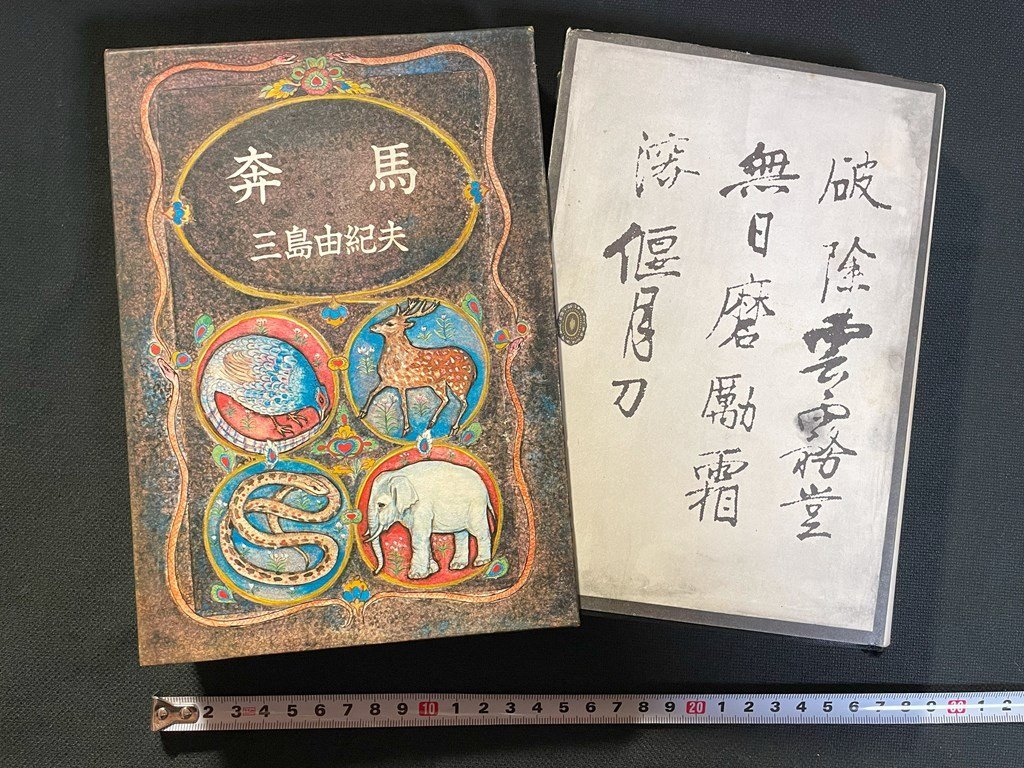 奔馬
三島由紀夫
破除雲霧豈
無日磨勵霜
深偃月刀
2 3 4 5 6 7 8 9 10 1 2 3 4 5 6 7 8 9 20 1 2 3 4 5 6 7 8 9 30 1 2